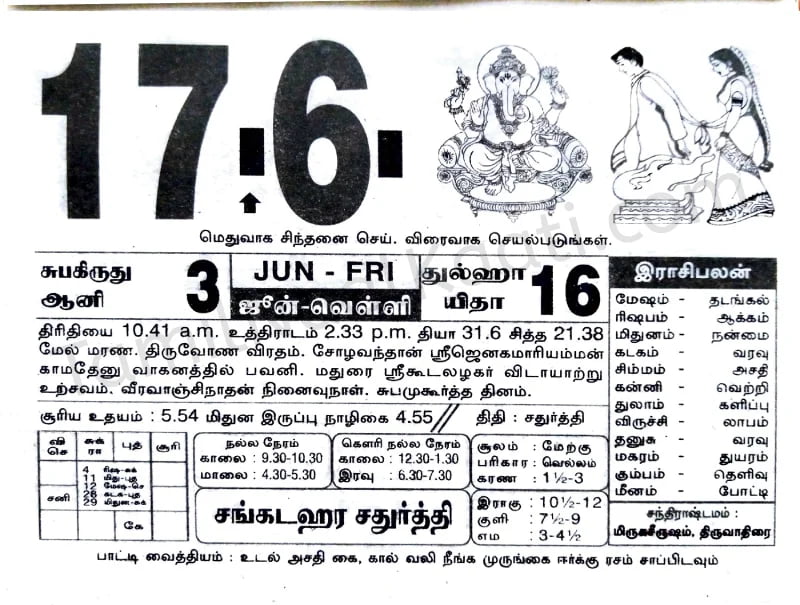 17.6.
மெதுவாக சிந்தனை செய். விரைவாக செயல்படுங்கள்.
சுபகிருது
ஆனி
3
JUN - FRI
ஜூன்-வெள்ளி
துல்ஹா
யிதா
16
திரிதியை 10.41 a.m. உத்திராடம் 2.33 p.m. தியா 31.6 சித்த 21.38
மேல் மரண. திருவோண விரதம். சோழவந்தான் ஸ்ரீஜெனகமாரியம்மன்
காமதேனு வாகனத்தில் பவனி. மதுரை ஸ்ரீகூடலழகர் விடாயாற்று
உற்சவம். வீரவாஞ்சிநாதன் நினைவுநாள். சுபமுகூர்த்த தினம்.
சூரிய உதயம் : 5.54 மிதுன இருப்பு நாழிகை 4.55 // திதி : சதுர்த்தி
வி செ
சுக் ரா
புத்
சூரி
சனி
4 ரிஷ-சுக்
11 மிது-புத
12 மேஷ-செ
28 கடக-புத
29 மிதுன-சுக்
கே
நல்ல நேரம்
காலை : 9.30-10.30
மாலை : 4.30-5.30
கௌரி நல்ல நேரம்
காலை : 12.30-1.30
இரவு : 6.30-7.30
சங்கடஹர சதுர்த்தி
சூலம் : மேற்கு
பரிகார : வெல்லம்
கரண : 1½-3
இராகு : 10½-12
குளி : 7½-9
எம : 3-4½
இராசிபலன்
மேஷம் - தடங்கல்
ரிஷபம் - ஆக்கம்
மிதுனம் - நன்மை
கடகம் - வரவு
சிம்மம் - அசதி
கன்னி - வெற்றி
துலாம் - களிப்பு
விருச்சி - லாபம்
தனுசு - வரவு
மகரம் - துயரம்
கும்பம் - தெளிவு
மீனம் - போட்டி
சந்திராஷ்டமம் :
மிருகசீருஷம், திருவாதிரை
பாட்டி வைத்தியம் : உடல் அசதி கை, கால் வலி நீங்க முருங்கை ஈர்க்கு ரசம் சாப்பிடவும்